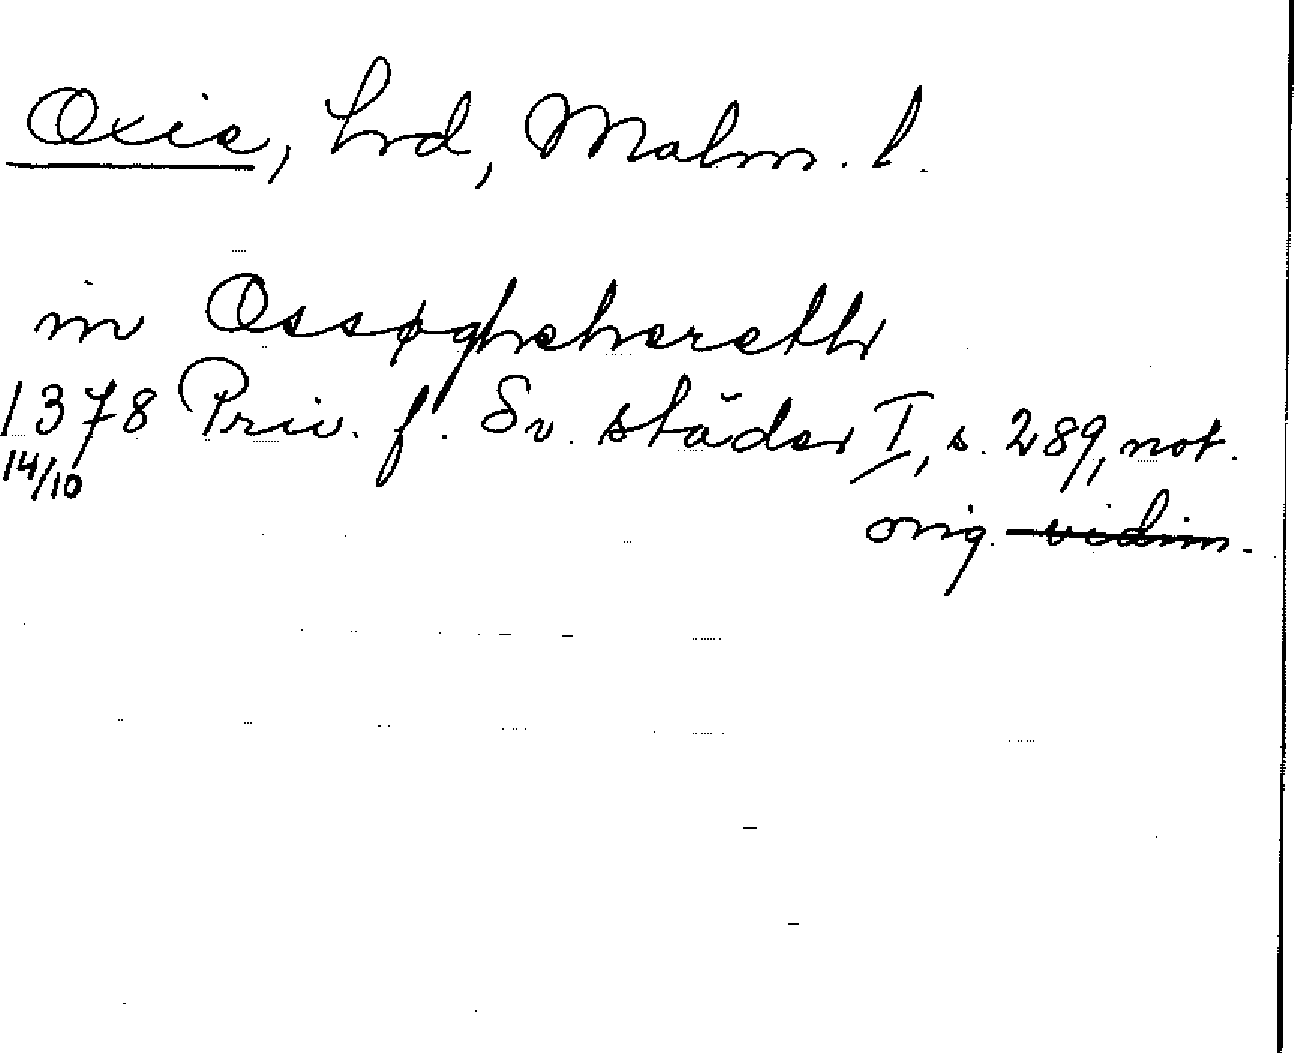 Oxie, hrd, Malm. l.
in Ossøghehereth
1378 Priv. f. Sv. städer I, s. 289, not.
14/10
orig. vidim.